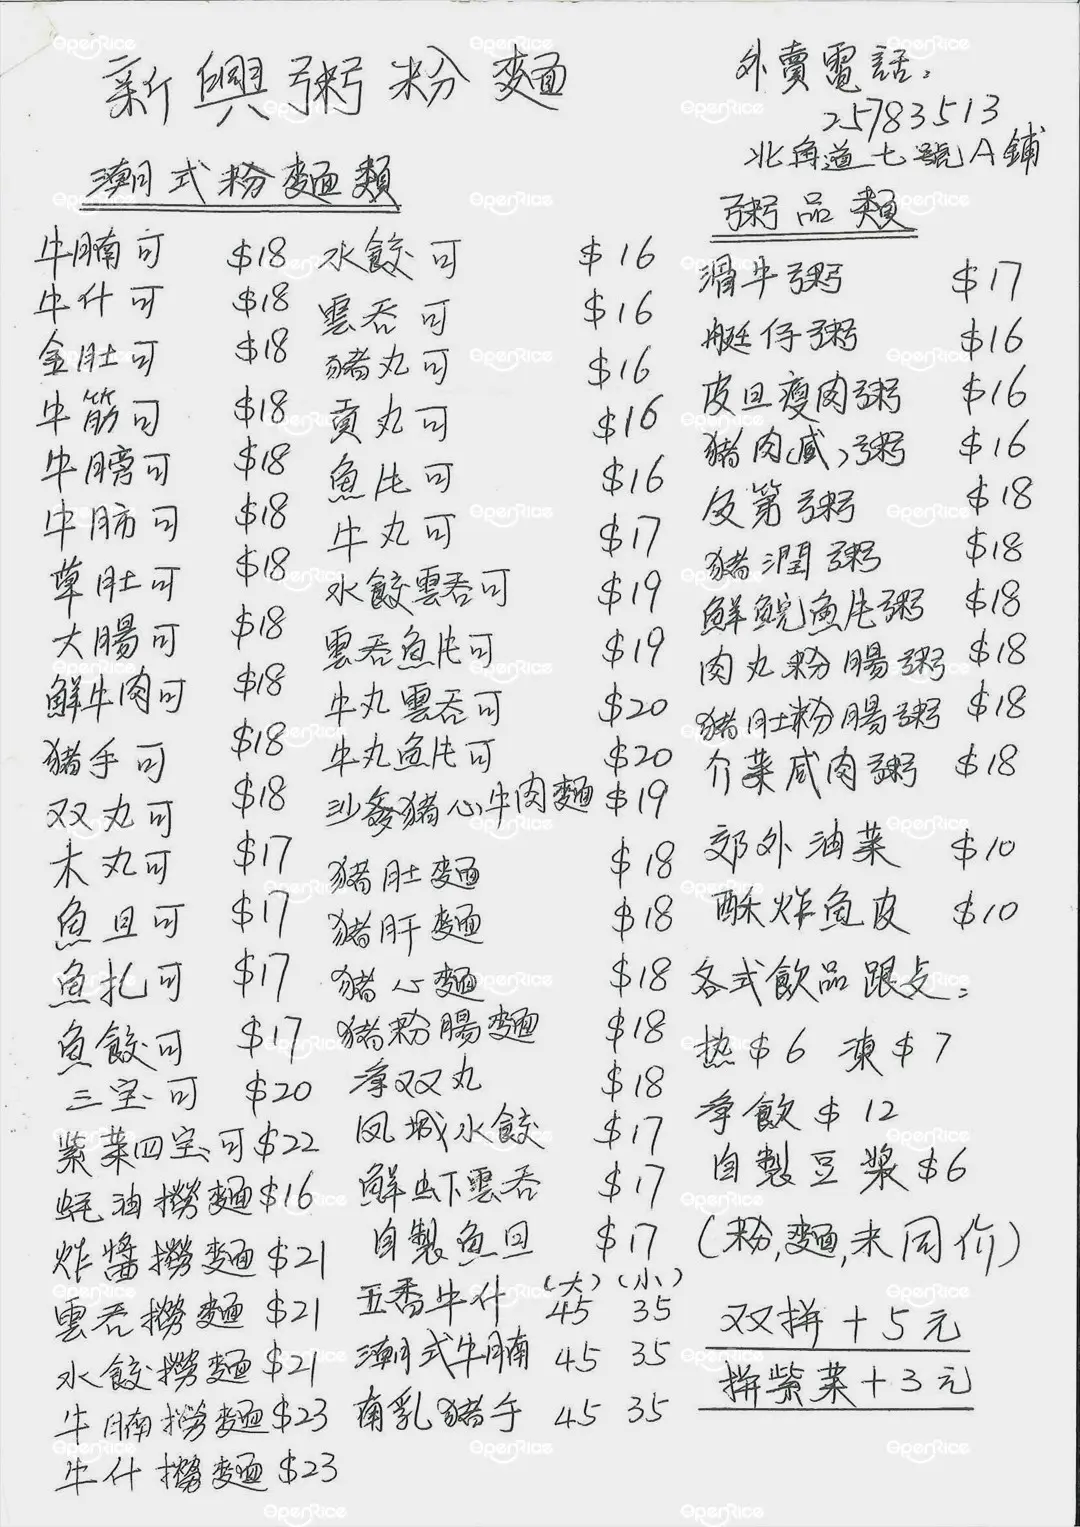 新興粥粉麵
外賣電話:
25783513
北角道七號A鋪
潮式粉麵類
牛腩可 $18
牛什可 $18
金肚可 $18
牛筋可 $18
牛膀可 $18
牛肺可 $18
草肚可 $18
大腸可 $18
鮮牛肉可 $18
豬手可 $18
双丸可 $18
木丸可 $17
魚旦可 $17
魚扎可 $17
魚餃可 $17
三宝可 $20
紫菜四宝可 $22
蚝油撈麵 $16
炸醬撈麵 $21
雲吞撈麵 $21
水餃撈麵 $21
牛腩撈麵 $23
牛什撈麵 $23
水餃可 $16
雲吞可 $16
豬丸可 $16
貢丸可 $16
魚片可 $16
牛丸可 $17
水餃雲吞可 $19
雲吞魚片可 $19
牛丸雲吞可 $20
牛丸魚片可 $20
沙爹豬心牛肉麵 $19
豬肚麵 $18
豬肝麵 $18
豬心麵 $18
豬粉腸麵 $18
淨双丸 $18
凤城水餃 $17
鮮虾雲吞 $17
自製魚旦 $17
(大) (小)
五香牛什 45 35
潮式牛腩 45 35
南乳豬手 45 35
粥品類
滑牛粥 $17
艇仔粥 $16
皮旦瘦肉粥 $16
豬肉(咸)粥 $16
及第粥 $18
豬潤粥 $18
鮮鯇魚片粥 $18
肉丸粉腸粥 $18
豬肚粉腸粥 $18
介菜咸肉粥 $18
郊外油菜 $10
酥炸魚皮 $10
各式飲品跟点:
热$6 凍$7
净飲$12
自製豆漿$6
(粉,麵,米同价)
双拼+5元
拼紫菜+3元